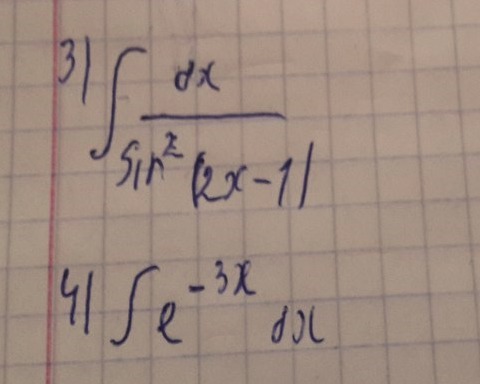 3) ∫ dx / sin² (2x-1)
4) ∫ e⁻³ˣ dx